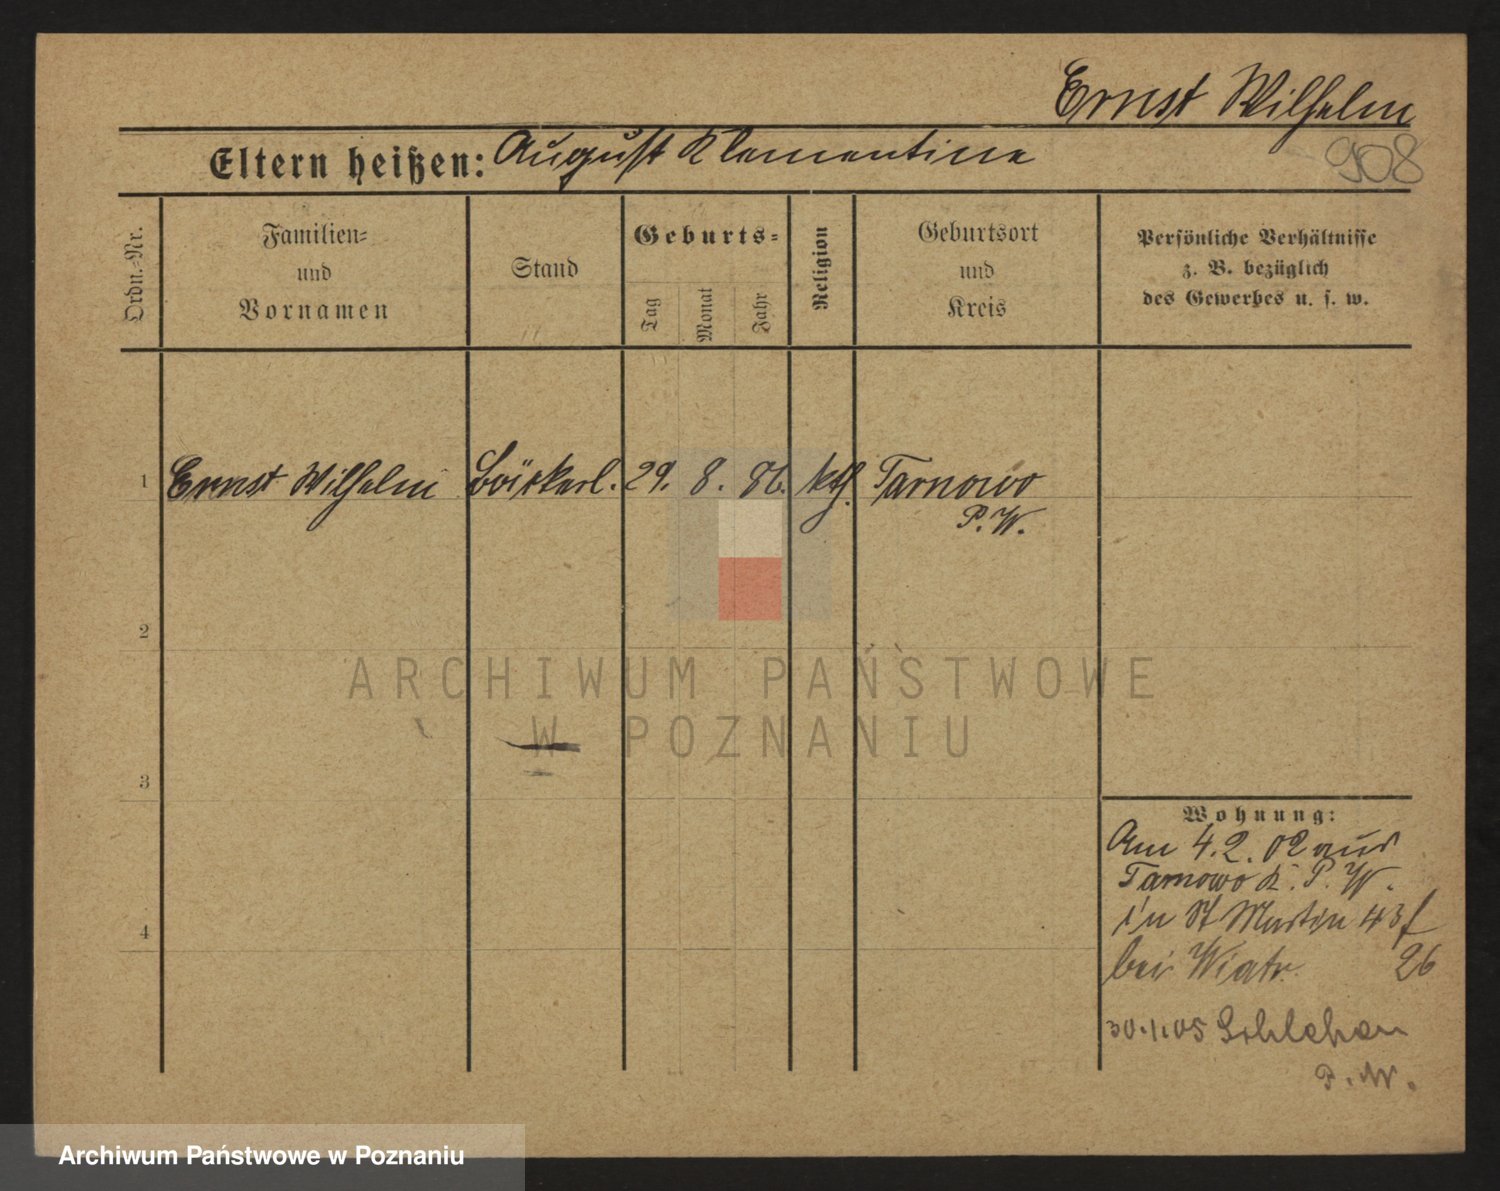 Ernst Wilhelm
Eltern heißen: August Klementine
908
Ordn.-Nr.
Familien-
und
Vornamen
Stand
Geburts-
Tag
Monat
Jahr
Religion
Geburtsort
und
Kreis
Persönliche Verhältnisse
z. B. bezüglich
des Gewerbes u. s. w.
1 Ernst Wilhelm 29. 8. 86. kth. Tarnowo
P. W.
2
3
4
Wohnung:
Am 4.2.02 aus
Tarnowo K. P. W.
in St Martin 43
bei Wiatr. 26
30.1.05 Schlehen
P. W.
ARCHIWUM PAŃSTWOWE
W POZNANIU
Archiwum Państwowe w Poznaniu